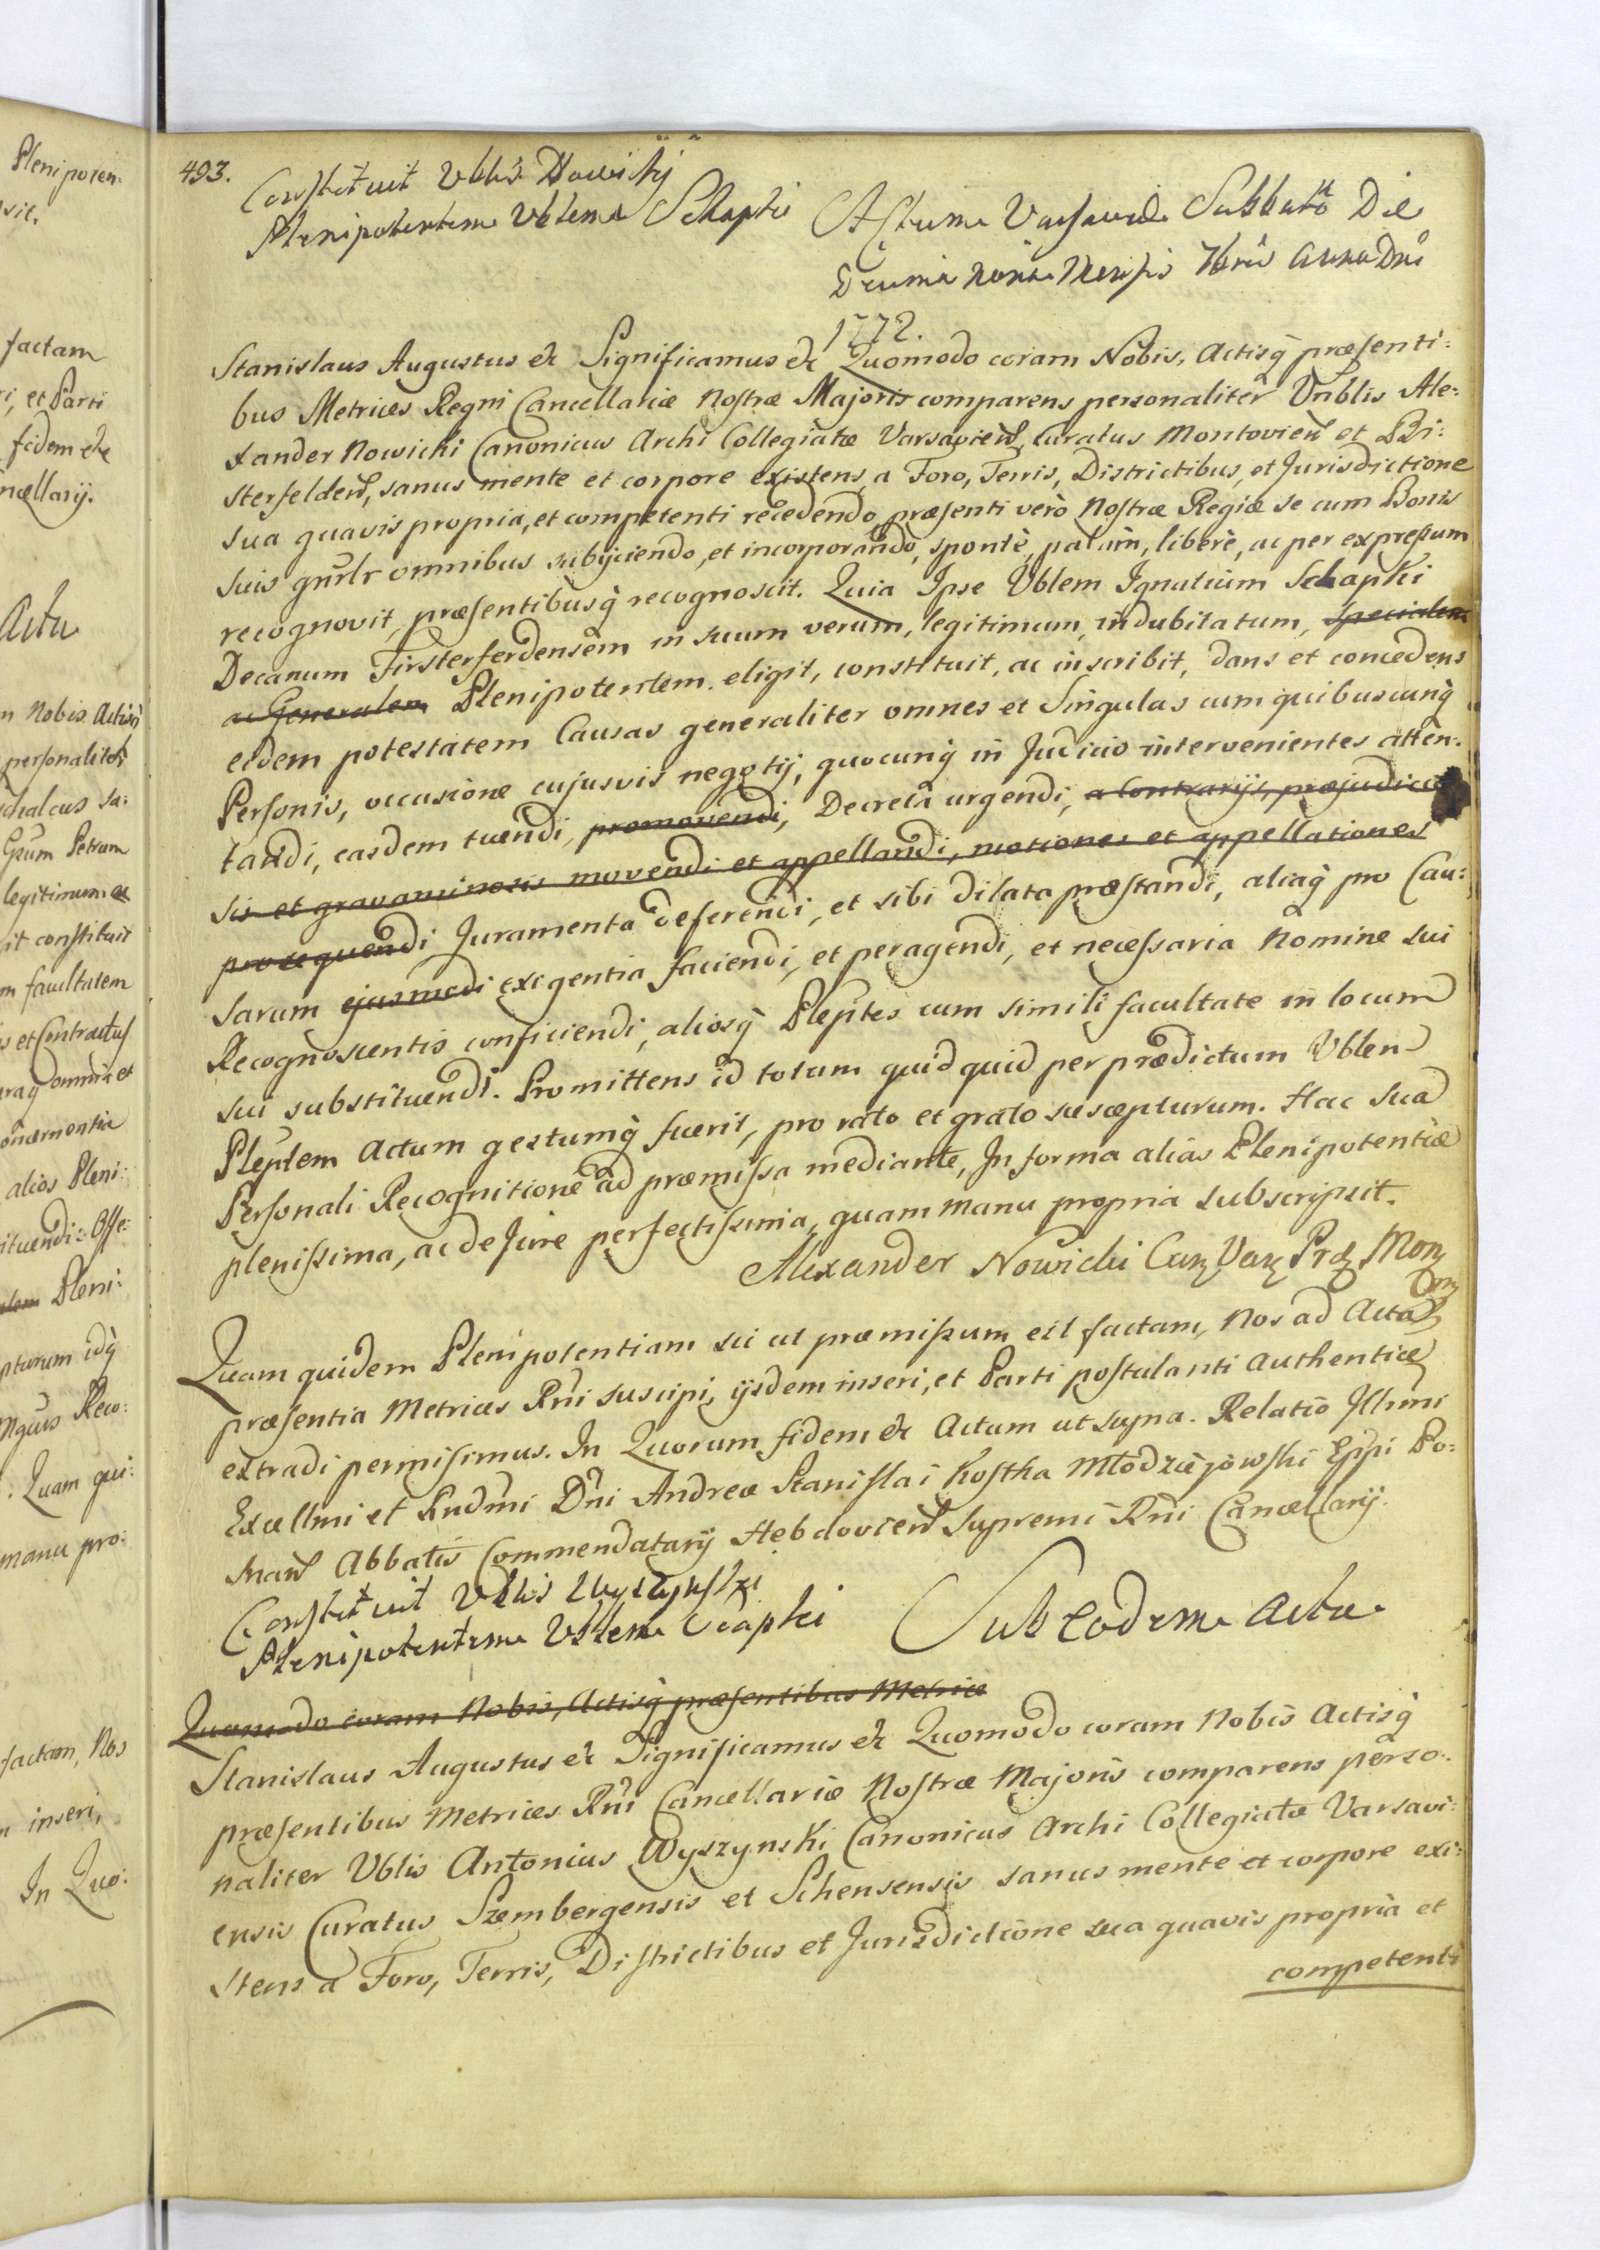 Pleni poten:
vit.
factam
ri, et Parti
fidem etc
ncellarij.
Actu
m Nobis Actisq̀
personaliter
legitimum ac
it constituit
m facultatem
is et Contractus
omnia et
alios Pleni:
ituendi: Offe:
Pleni:
pturum idq̀
Reco:
. Quam qui:
manu pro:
factam, Nos
n inseri,
In Quo:
493.
Constituit Vblis Nowicki
Plenipotentem Vblem Schapki
Actum Varsaviae Sabbato Die
Decima Nona Mensis 7bris Anno Dni
1772.
Stanislaus Augustus etc Significamus etc Quomodo coram Nobis, Actisq̀ præsenti:
bus Metrices Regni Cancellariæ Nostræ Majoris comparens personaliter Vnblis Ale:
xander Nowicki Canonicus Archi Collegiatæ Varsavien, Curatus Montovien et Bi:
sterfelden, sanus mente et corpore existens, a Foro, Terris, Districtibus, et Jurisdictione
sua quavis propria, et competenti recedendo, præsenti verò Nostræ Regiæ se cum Bonis
suis gnrlr omnibus subijciendo, et incorporando, spontè, palàm, liberè, ac per expressum
recognovit, præsentibusq̀ recognoscit. Quia Ipse Vblem Ignatium Schapki
Decanum Firsterferdensem in suum verum, legitimum, indubitatum, specialem
ac Generalem Plenipotentem. eligit, constituit, ac inscribit, dans et concedens
eidem potestatem Causas generaliter omnes et Singulas cum quibuscunq̀
Personis, occasione cujusvis negotij, quocunq̀ in Judicio intervenientes atten:
tandi, easdem tuendi, promovendi, Decreta urgendi, a Contrarijs, præjudicio
sis et gravaminosis movendi et appellandi, motiones et appellationes
prosequendi Juramenta deferendi, et sibi dilata præstandi, aliaq̀ pro Cau:
sarum ejusmodi exigentia faciendi, et peragendi, et necessaria Nomine sui
Recognoscentis conficiendi, aliosq̀ Pleptes cum simili facultate in locum
sui substituendi. Promittens id totum quidquid per prædictum Vblem
Pleptem Actum gestumq̀ fuerit, pro rato et grato suscepturum. Hac Sua
Personali Recognitione ad præmissa mediante, In forma alias Plenipotentiæ
plenissima, ac de Jure perfectissima, quam manu propria subscripsit.
Alexander Nowicki Can Var Præ Mon
Quam quidem Plenipotentiam sic ut præmissum est factam, Nos ad Acta
præsentia Metrices Rni suscipi, ijsdem inseri, et Parti postulanti Authentice
extradi permisimus. In Quorum fidem etc Actum ut supra. Relatio Illmi
Excellmi et Rndmi Dni Andreæ Stanislai Kostka Młodziejowski Eppi Po:
snan Abbatis Commendatarij Hebdovien Supremi Rni Cancellarij.
Constituit Vblis Wyszynski
Plenipotentem Vblem Czapki
Sub Eodem Actu
Quomodo coram Nobis, Actisq̀ præsentibus Metrice
Stanislaus Augustus etc Significamus etc Quomodo coram Nobis Actisq̀
præsentibus Metrices Rni Cancellariæ Nostræ Majoris comparens perso:
naliter Vblis Antonius Wyszynski Canonicus Archi Collegiatæ Varsavi:
ensis Curatus Szembergensis et Schensensis sanus mente et corpore exi:
stens a Foro, Terris, Districtibus et Jurisdictione sua quavis propria et
competenti